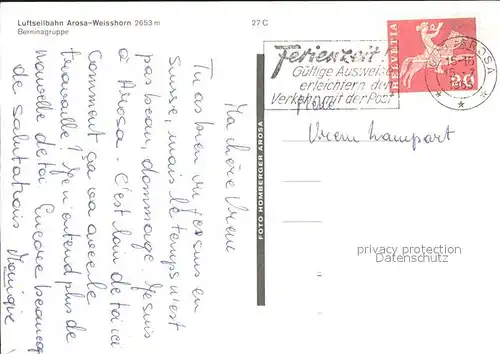 Luftseilbahn Arosa-Weisshorn 2653 m
Berninagruppe
27 C
Ferienzeit!
Gültige Ausweise
erleichtern den
Verkehr mit der Post
HELVETIA
20
AROSA
15-16
1969
Vrem
privacy protection
Datenschutz
FOTO HOMBERGER AROSA
Ma chère Vrem
Tu as bien en
Suisse, mais le temps n'est
pas beau, dommage. Je suis
à Arosa. C'est loin de ta ici
Comment ça va avec le
travaille? J'en n'entend plus de
nouvelle de toi. Encore beaucoup
de salutations Monique